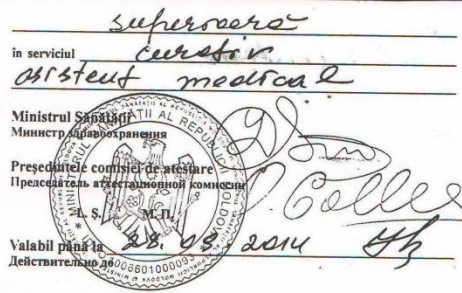 superioară
în serviciul curativ
asistent medical
Ministrul Sănătății
Министр здравоохранения
Președintele comisiei de atestare
Председатель аттестационной комиссии
L. Ș. М.П.
Valabil până la 28. 05 2014
Действительно до
MINISTERUL SĂNĂTĂȚII AL REPUBLICII MOLDOVA
1006601000093